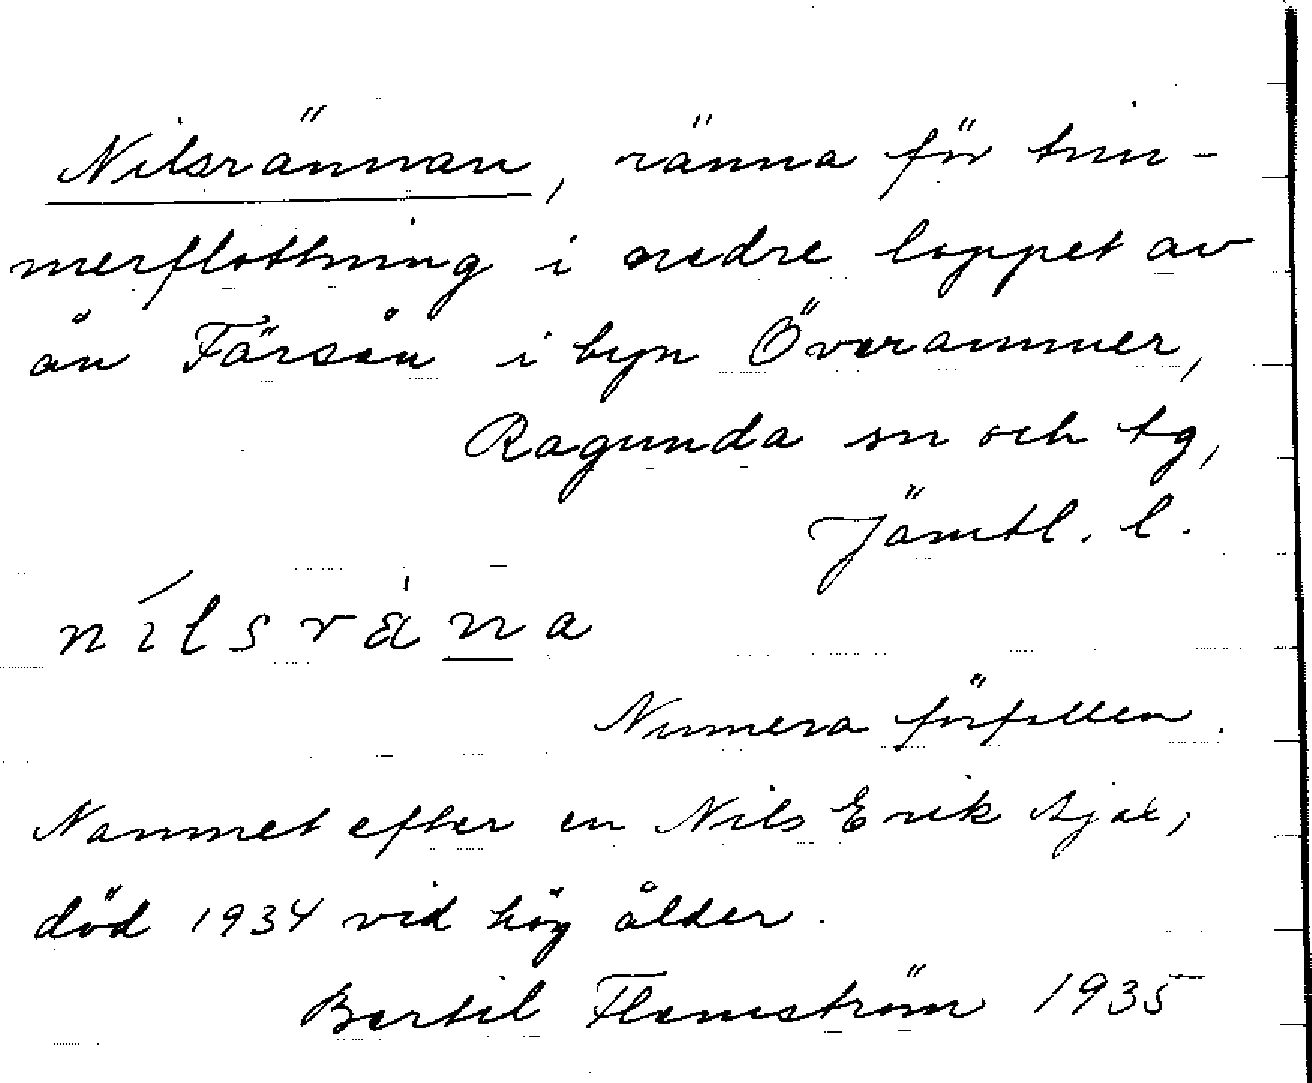 Nilsrännan, ränna för tim-
merflottning i nedre loppet av
ån Färsån i byn Överammer,
Ragunda sn och tg,
Jämtl. l.
nílsrána
Numera förfallen.
Namnet efter en Nils Erik Ajax,
död 1934 vid hög ålder.
Bertil Flemström 1935